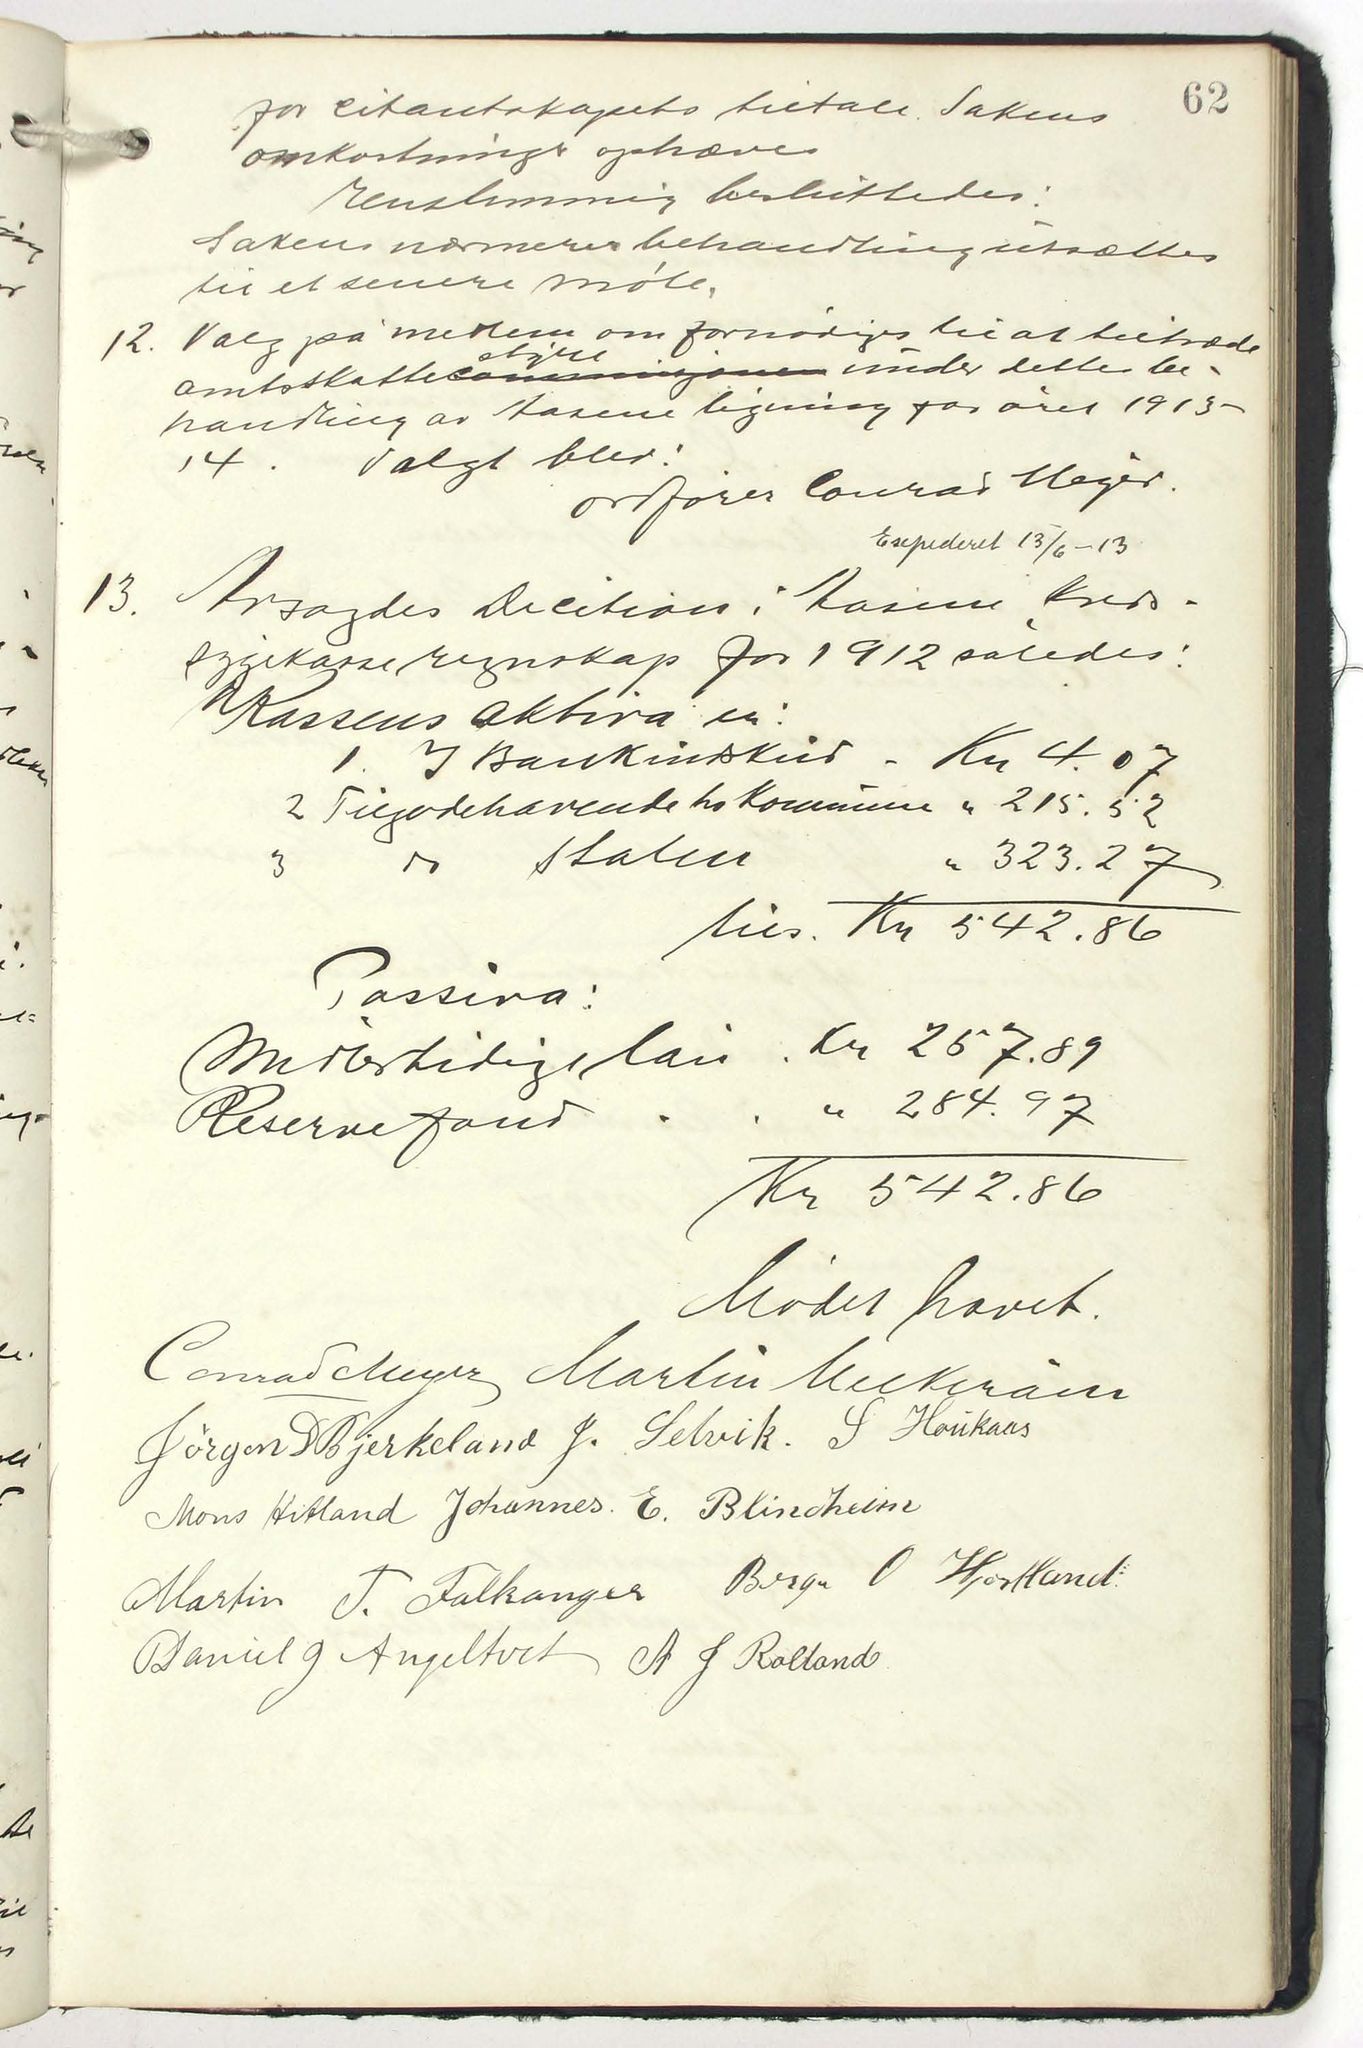 62
for citantskapets tiltale. Sakens
omkostninger ophæves
Enstemmig besluttedes:
Sakens nærmere behandling utsættes
til et senere møte.
12. Valg på medlem om fornødiges til at tiltræde
amtsskattestyre under dettes be-
handling av Aasene ligning for året 1913-
14. Valgt blev:
ordfører Conrad Meyer.
Expederet 13/6-13
13. Avsagdes Decition i Aasene Kreds-
sygekasse regnskap for 1912 således:
Kassens aktiva er:
1. I Bankindskud - Kr 4.07
2 Tilgodehavende hos Kommune " 215.52
3 do Staten " 323.27
tils. Kr 542.86
Passiva:
Midlertidige lån . Kr 257.89
Reservefond . . " 284.97
Kr 542.86
Mødet hævet.
Conrad Meyer Martin
Jörgen D Bjerkeland J. Selvik. S Houkaas
Mons Hitland Johannes. E. Blindheim
Martin T. Falkanger Berge O Hjortland
Daniel J Angeltvet A J Rolland